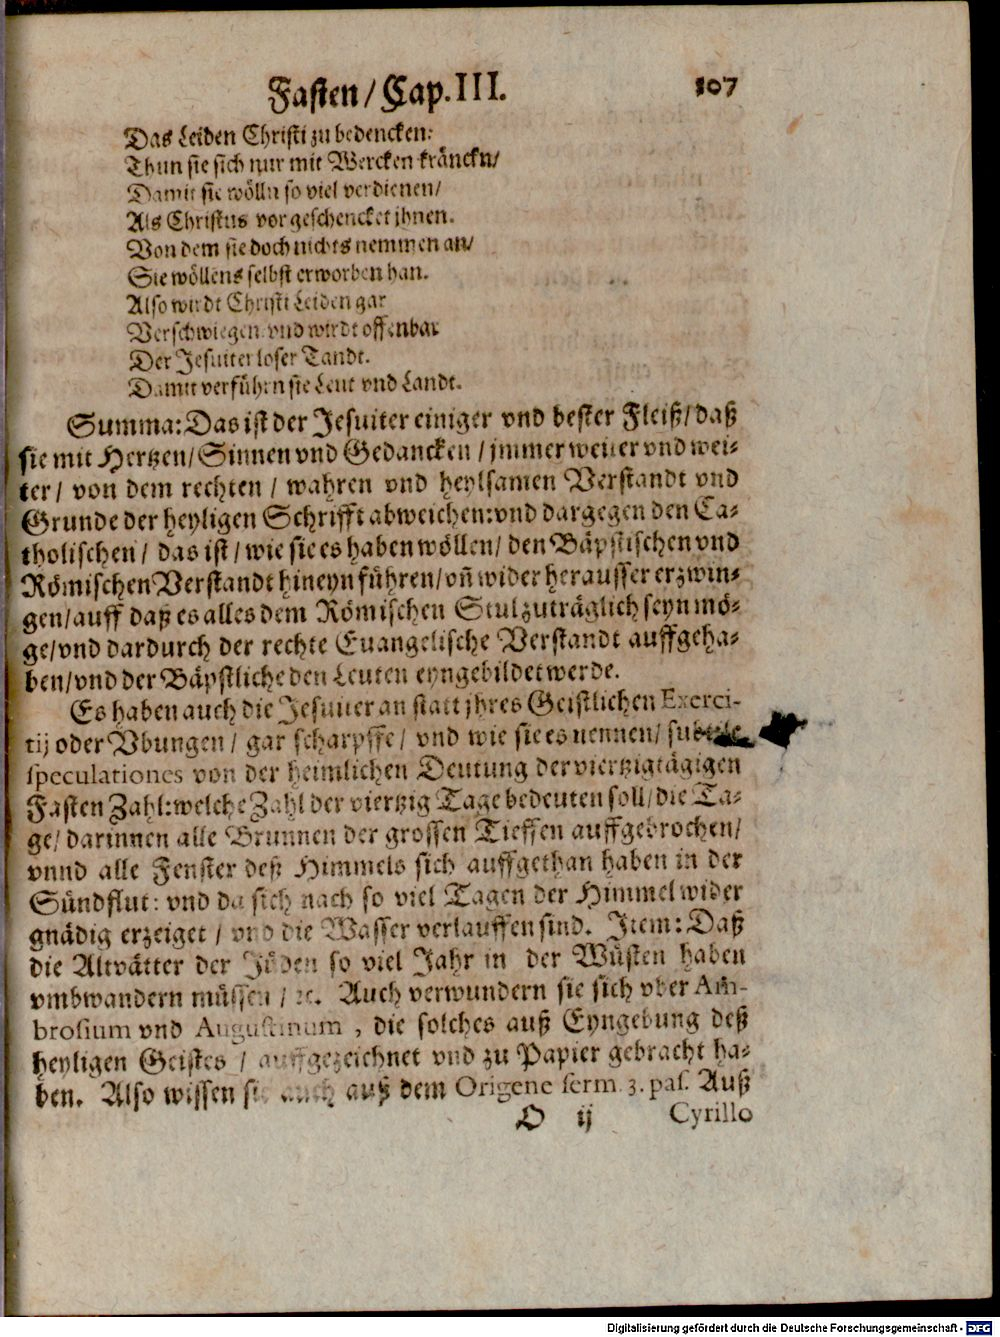 Fasten / Cap. III. 107
Das Leiden Christi zu bedencken:
Thun sie sich nur mit Wercken kränckn/
Damit sie wölln so viel verdienen/
Als Christus vor geschencket jhnen.
Von dem sie doch nichts nemmen an/
Sie wöllens selbst erworben han.
Also wirdt Christi Leiden gar
Verschwiegen vnd wirdt offenbar
Der Jesuiter loser Tandt.
Damit verführn sie Leut vnd Landt.
Summa: Das ist der Jesuiter einiger vnd bester Fleiß/ daß
sie mit Hertzen/ Sinnen vnd Gedancken / jmmer weiter vnd wei-
ter / von dem rechten / wahren vnd heylsamen Verstandt vnd
Grunde der heyligen Schrifft abweichen: vnd dargegen den Ca-
tholischen / das ist / wie sie es haben wöllen/ den Bäpstischen vnd
Römischen Verstandt hineyn führen/ vñ wider herausser erzwin-
gen/ auff daß es alles dem Römischen Stul zuträglich seyn mö-
ge/ vnd dardurch der rechte Euangelische Verstandt auffgeha-
ben/ vnd der Bäpstliche den Leuten eyngebildet werde.
Es haben auch die Jesuiter an statt jhres Geistlichen Exerci-
tij oder Vbungen / gar scharpffe / vnd wie sie es nennen/ subtile
speculationes von der heimlichen Deutung der viertzigtägigen
Fasten Zahl: welche Zahl der viertzig Tage bedeuten soll/ die Ta-
ge/ darinnen alle Brunnen der grossen Tieffen auffgebrochen/
vnnd alle Fenster deß Himmels sich auffgethan haben in der
Sündflut: vnd da sich nach so viel Tagen der Himmel wider
gnädig erzeiget / vnd die Wasser verlauffen sind. Item: Daß
die Altvätter der Jüden so viel Jahr in der Wüsten haben
vmbwandern müssen / ꝛc. Auch verwundern sie sich vber Am-
brosium vnd Augustinum , die solches auß Eyngebung deß
heyligen Geistes / auffgezeichnet vnd zu Papier gebracht ha-
ben. Also wissen sie auch auß dem Origene serm. 3. pas. Auß
O ij Cyrillo
Digitalisierung gefördert durch die Deutsche Forschungsgemeinschaft - DFG